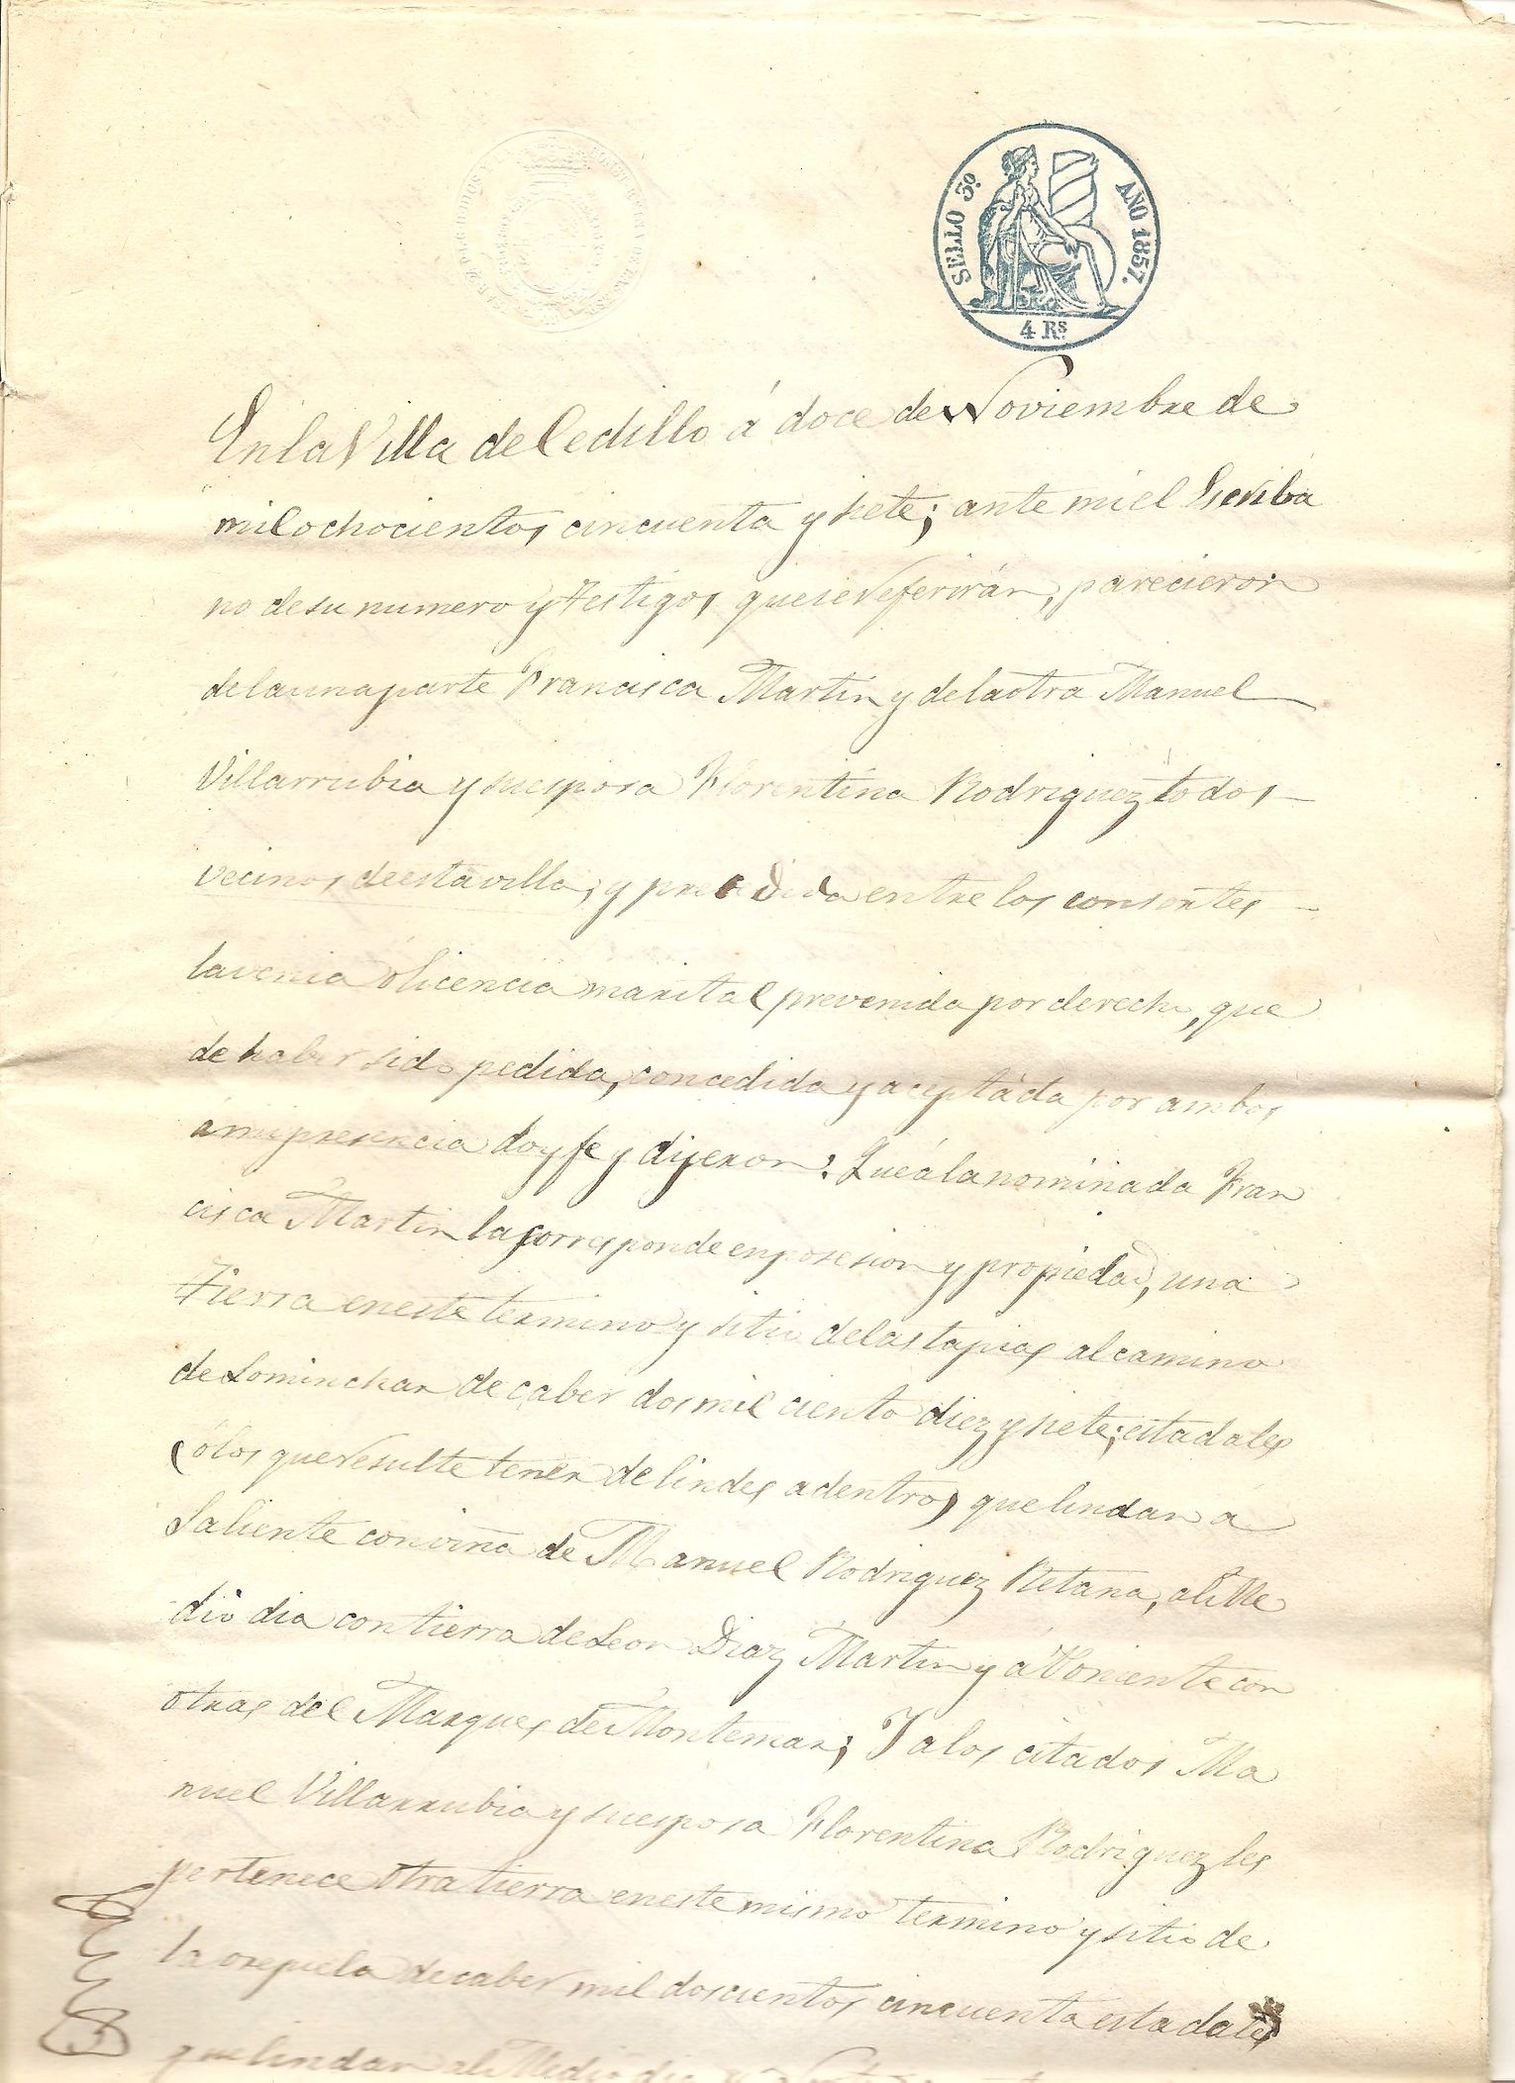 SELLO 3º AÑO 1857.
4 Rs.
En la Villa de Cedillo á doce de Noviembre de
mil ochocientos cincuenta y siete; ante mi el Escriba
no de su numero y Testigos que se referirán, parecieron
de la una parte Francisca Martin y de la otra Manuel
Villarrubia y su esposa Florentina Rodriguez todos
vecinos de esta villa, y precedida entre los consortes
la venia ó licencia marital prevenida por derecho, que
de haber sido pedida, concedida y aceptada por ambos
a mi presencia doy fe y dijeron: Que á la nominada Fran
cisca Martin la corresponde en posesion y propiedad, una
Tierra en este termino y sitio de las tapias al camino
de Lominchar de caber dos mil ciento diez y siete estadales
(ó los que resulte tener de lindes adentro) que lindan á
Saliente con viña de Manuel Rodriguez Retana, al Me
dio dia con tierra de Leon Diaz Martin y á Poniente con
otras del Marques de Montemar; Y a los citados Ma
nuel Villarrubia y su esposa Florentina Rodriguez les
pertenece otra tierra en este mismo termino y sitio de
la de caber mil doscientos cincuenta estadales
que lindan al Medio dia